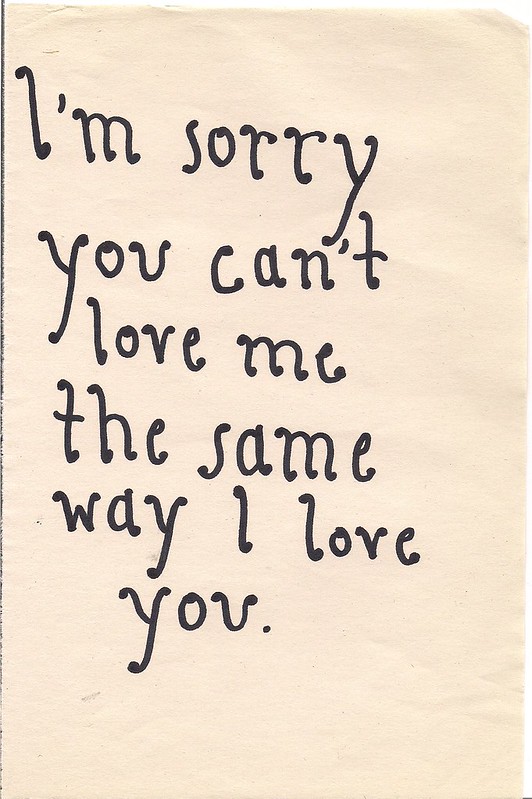 I'm sorry
you can't
love me
the same
way I love
you.